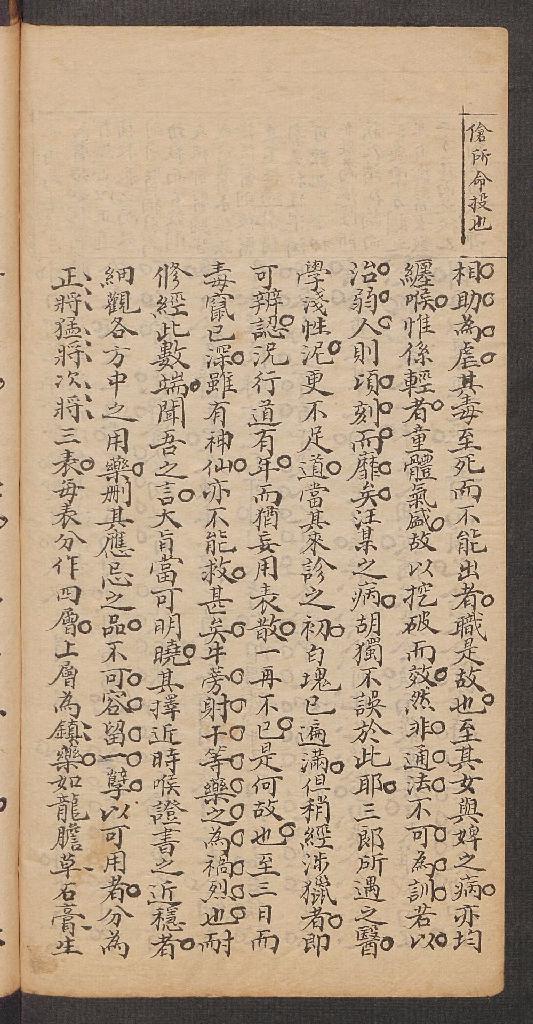 傖所命投也
相助為虐其毒至死而不能出者職是故也至其女與婢之病亦均
纏喉惟係輕者童體氣盛故以挖破而效然非通法不可為訓若以
治弱人則頃刻而靡矣汪某之病胡獨不誤於此耶三郎所遇之醫
學淺性泥更不足道當其來診之初白塊已遍滿但稍經涉獵者即
可辨認況行道有年而猶妄用表散一再不已是何故也至三日而
毒竄已深雖有神仙亦不能救甚矣牛蒡射干等藥之為禍烈也耐
修經此數端聞吾之言大旨當可明曉其擇近時喉證書之近穩者
細觀各方中之用藥刪其應忌之品不可容留一孽以可用者分為
正將猛將次將三表每表分作四層上層為鎮藥如龍膽草石膏生